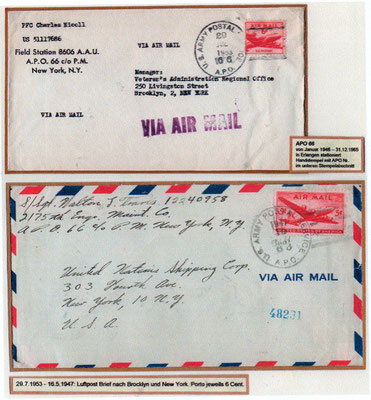 PFC Charles Nicoll
US 51117686
Field Station 8606 A.A.U.
A.P.O. 66 c/o P.M.
New York, N.Y.
VIA AIR MAIL
VIA AIR MAIL
U.S. ARMY POSTAL SERVICE
29
JUL
1953
A.P.O.
AIR MAIL
Manager:
Veteran's Administration Regional Office
250 Livingston Street
Brooklyn, 2, NEW YORK
VIA AIR MAIL
APO 66
von Januar 1946 – 31.12.1965
in Erlangen stationiert
Handstempel mit APO Nr.
im unteren Stempelabschnitt
S/Sgt. Walton J. Travis 12240958
2175th Engr. Maint. Co.
A.P.O. 66 c/o P.M. New York, N.Y.
U.S. ARMY POSTAL SERVICE
A.P.O.
AIR MAIL
5¢
United Nations Shipping Corp.
303 Fourth Ave.
New York, 10 N.Y.
U.S.A.
VIA AIR MAIL
48231
29.7.1953 - 16.5.1947: Luftpost Brief nach Brocklyn und New York. Porto jeweils 6 Cent.